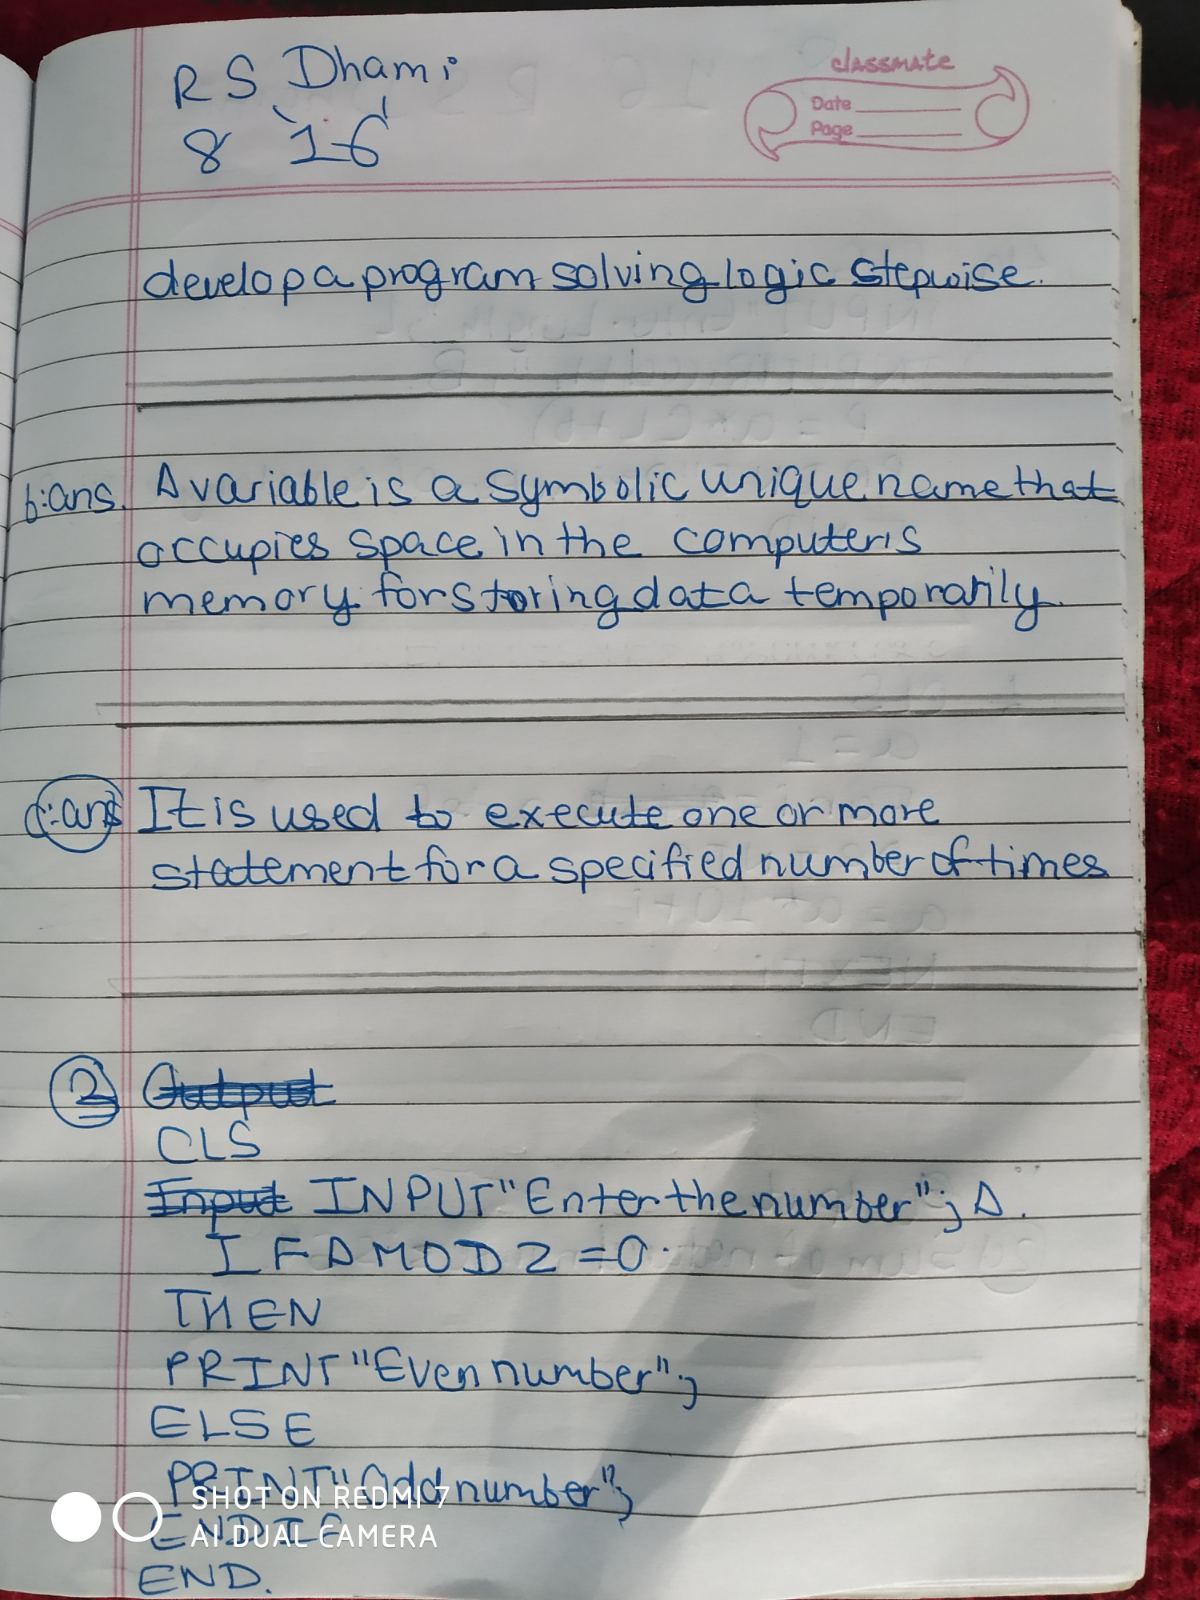 R S Dhami
8 '16'
classmate
Date
Page
develop a program solving logic stepwise.
b:ans. A variable is a symbolic unique name that
occupies space in the computer's
memory for storing data temporarily.
c:ans It is used to execute one or more
statement for a specified number of times
2
CLS
INPUT "Enter the number"; A.
IF A MOD 2 = 0.
THEN
PRINT "Even number";
ELSE
PRINT "Odd number";
SHOT ON REDMI 7
AI DUAL CAMERA
ENDIF
END.